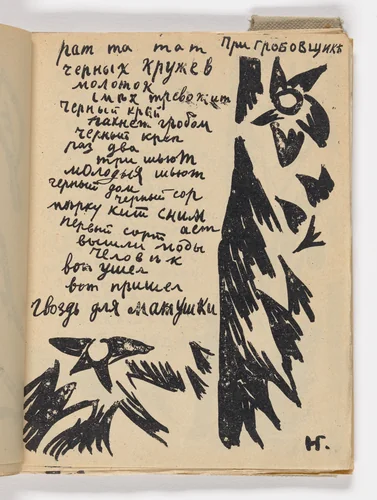 рат та тат
При гробовщикѣ
черных кружев
молоток
смѣх тревожит
черный креп
пахнет гробом
черный креп
раз два
три шьют
молодыя шьют
черный дом
черный сор
сним
первый сорт
вышли моды
человѣк
вот ушел
вот пришел
гвоздь для матушки
НГ.